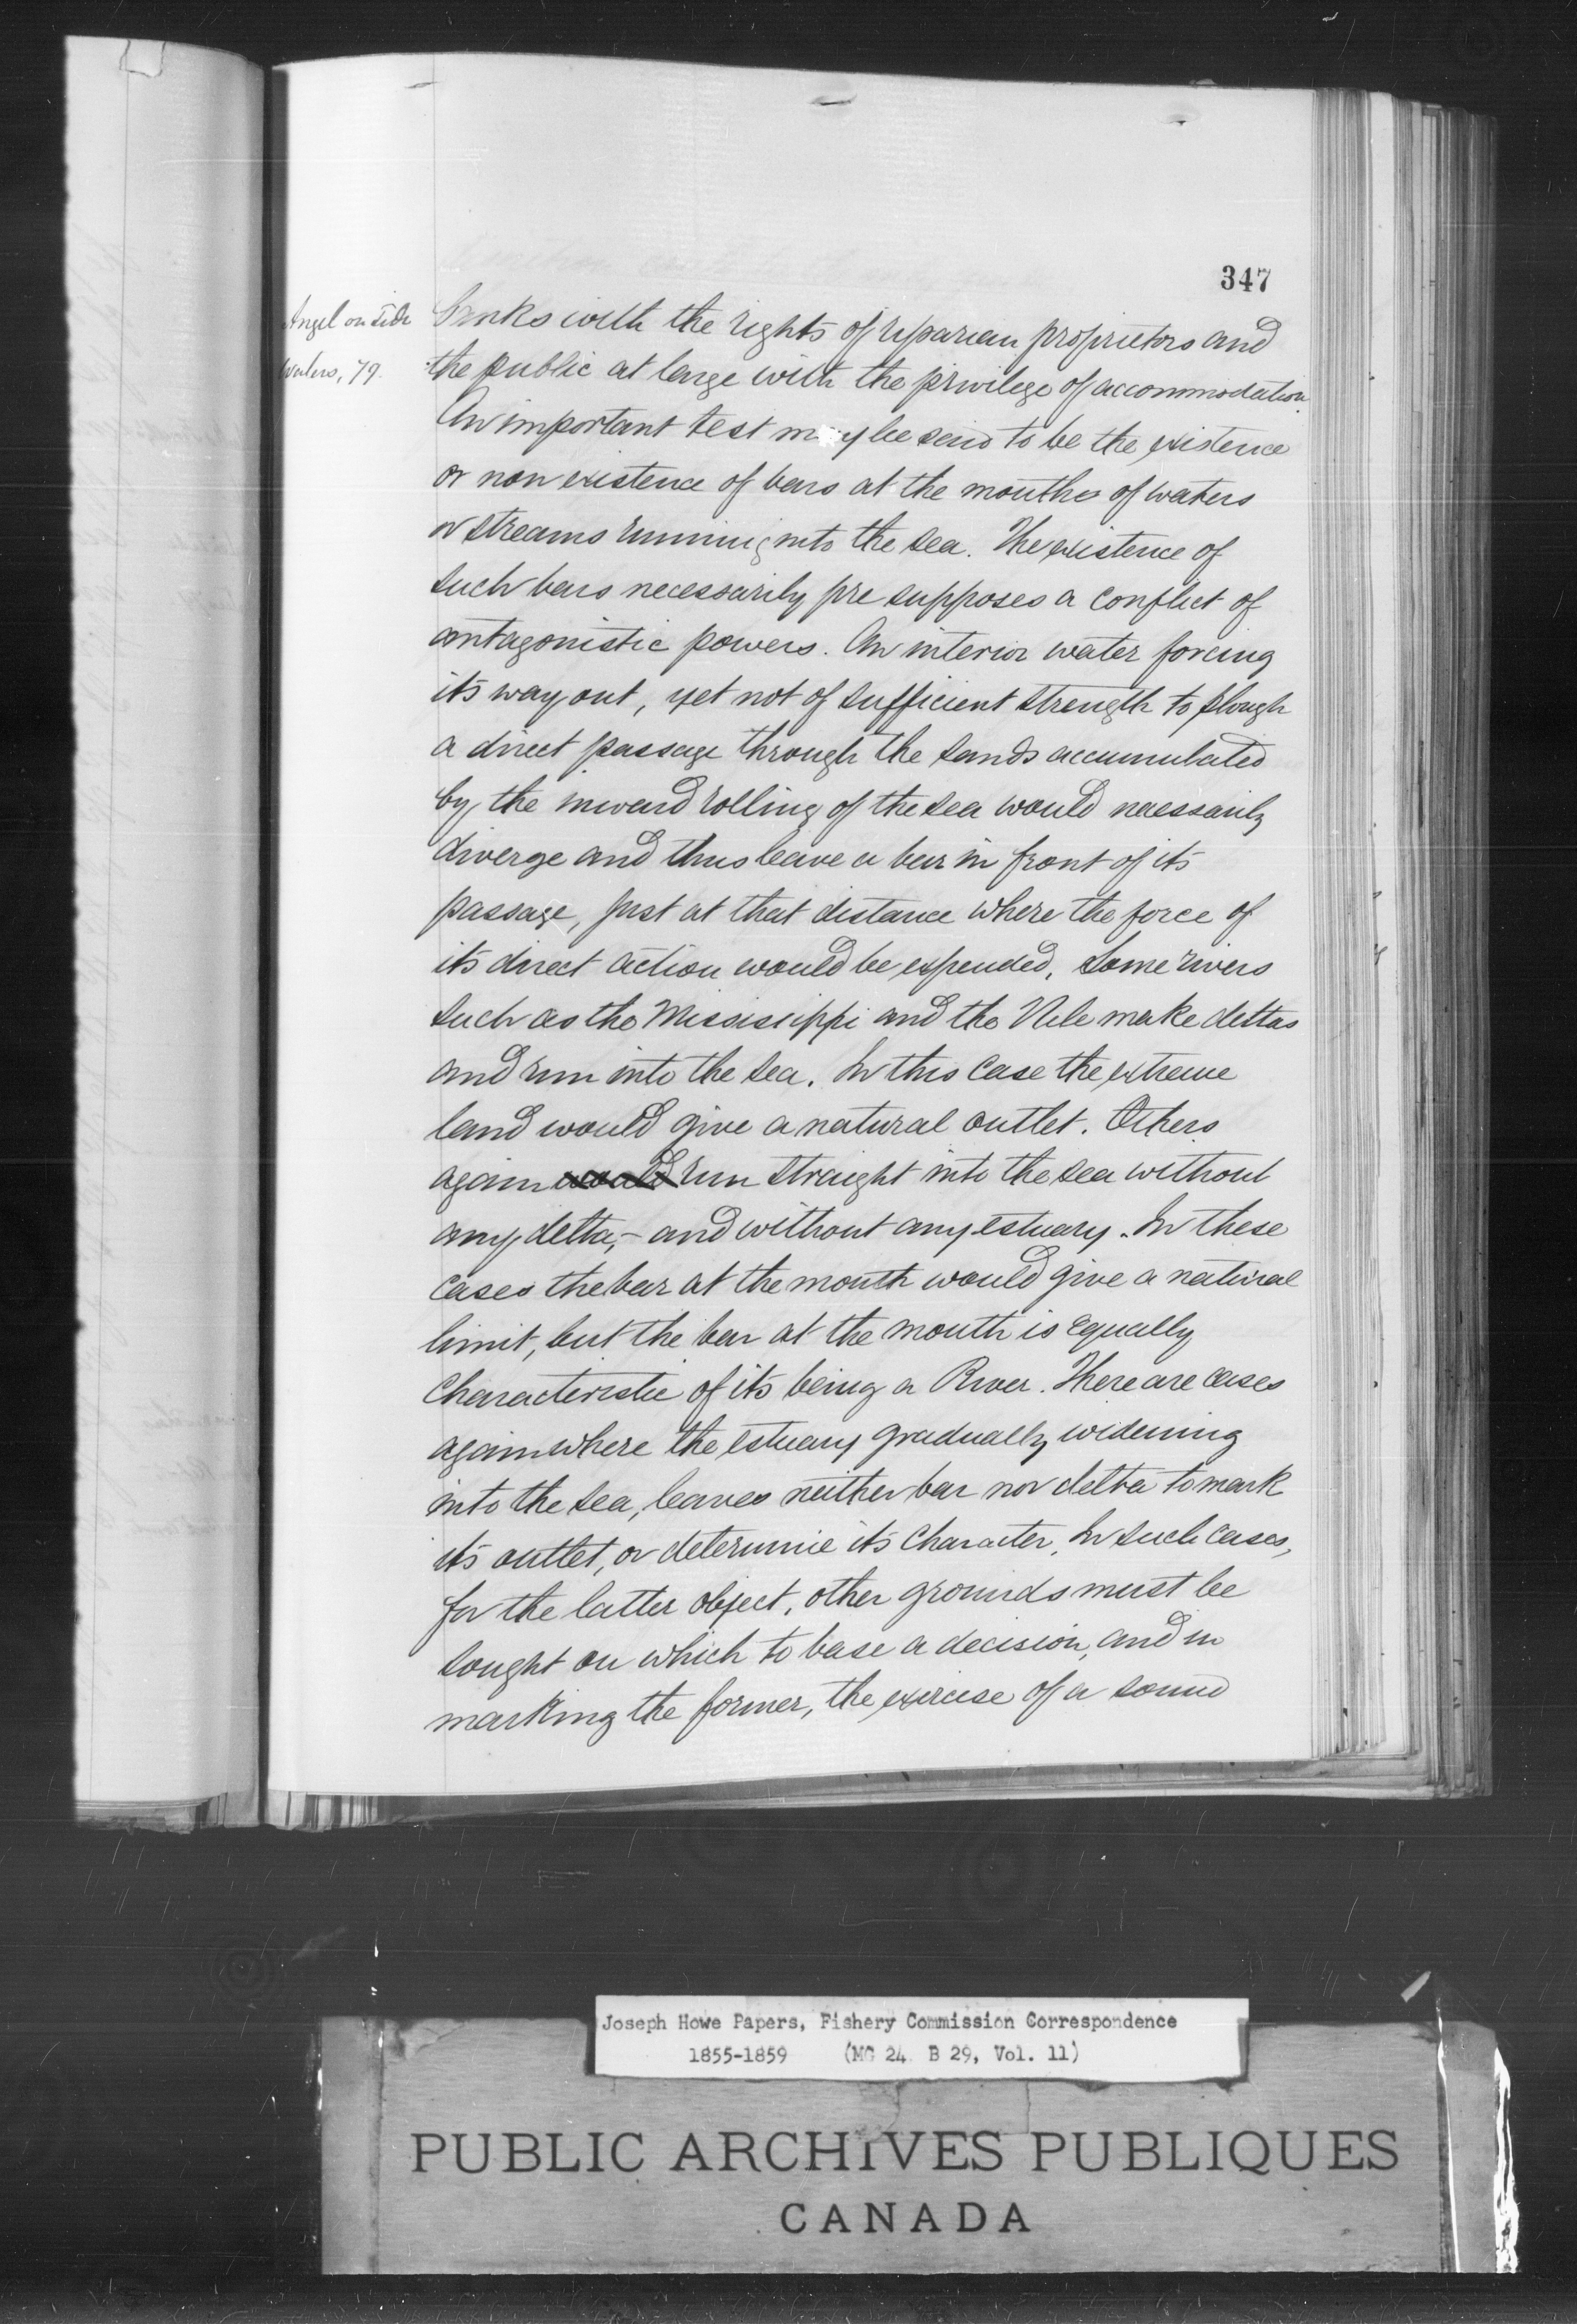 347
Angel on Tide
Waters, 79.
banks with the rights of riparian proprietors and
the public at large with the privilege of accommodation.
An important test may be said to be the existence
or non existence of bars at the mouths of waters
or streams running into the sea. The existence of
such bars necessarily pre supposes a conflict of
antagonistic powers. An interior water forcing
its way out, yet not of sufficient strength to plough
a direct passage through the sands accumulated
by the inward rolling of the sea would necessarily
diverge and thus leave a bar in front of its
passage, just at that distance where the force of
its direct action would be expended. Some rivers
such as the Mississippi and the Nile make deltas
and run into the sea. In this case the extreme
land would give a natural outlet. Others
again would run straight into the sea without
any delta,- and without any estuary. In these
cases the bar at the mouth would give a natural
limit, but the bar at the mouth is equally
characteristic of its being a River. There are cases
again where the estuary gradually widening
into the sea, leaves neither bar nor delta to mark
its outlet, or determine its character. In such cases,
for the latter object, other grounds must be
sought on which to base a decision, and in
marking the former, the exercise of a sound
Joseph Howe Papers, Fishery Commission Correspondence
1855-1859 (MG 24 B 29, Vol. 11)
PUBLIC ARCHIVES PUBLIQUES
CANADA